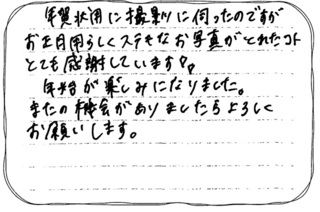 年賀状用に撮影に伺ったのですが
お正月用らしくステキなお写真がとれたコト
とても感謝しています!!
年始が楽しみになりました。
またの機会がありましたらよろしく
お願いします。